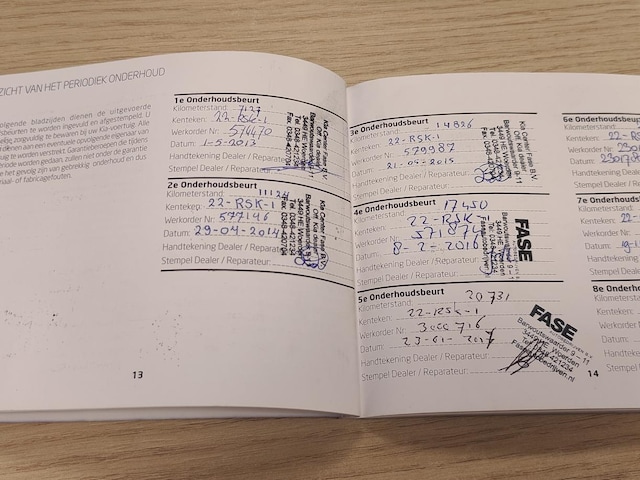 ZICHT VAN HET PERIODIEK ONDERHOUD
olgende bladzijden dienen de uitgevoerde
sbeurten te worden ingevuld en afgestempeld. U
zorgvuldig te bewaren bij uw Kia-voertuig. Alle
dienen aan een eventuele opvolgende eigenaar van
ig te worden verstrekt. Garantieberoepen die tijdens
iode worden gedaan zullen niet onder de garantie
het gevolg zijn van gebrekkig onderhoud en dus
iaal- of fabricagefouten.
1e Onderhoudsbeurt
Kilometerstand: 7127
Kenteken: 22-RSK-1
Werkorder Nr: 574470
Datum: 1-5-2013
Handtekening Dealer / Reparateur
Stempel Dealer / Reparateur:
Kia Center Fase B.V.
2e Onderhoudsbeurt
Kilometerstand: 11124
Kenteken: 22-RSK-1
Werkorder Nr: 577146
Datum: 29-04-2014
Handtekening Dealer / Reparateur
Stempel Dealer / Reparateur:
Kia Center Fase B.V.
3449 HE Woerden
Tel. 0348-421234
13
3e Onderhoudsbeurt
Kilometerstand: 14826
Kenteken: 22-RSK-1
Werkorder Nr: 579987
Datum: 21-04-2015
Handtekening Dealer / Reparateur
Stempel Dealer / Reparateur:
Kia Center Fase B.V.
4e Onderhoudsbeurt
Kilometerstand: 17450
Kenteken: 22-RSK-1
Werkorder Nr: 571874
Datum: 8-2-2016
Handtekening Dealer / Reparateur
Stempel Dealer / Reparateur:
FASE
5e Onderhoudsbeurt
Kilometerstand: 20731
Kenteken: 22-RSK-1
Werkorder Nr: 3000716
Datum: 23-01-2017
Handtekening Dealer / Reparateur:
Stempel Dealer / Reparateur:
FASE
Barwoutswaarder 9 - 11
3449 HE Woerden
Tel. 0348-421234
14
6e Onderhoudsbeu
Kilometerstand:
Kenteken: 22-
Werkorder Nr:
Datum:
Handtekening De
Stempel Dealer
7e Onderho
Kilometerstand
Kenteken:
Werkorder Nr
Datum:
Handtekening
Stempel Deale
8e Onderho
Kilometerstan
Kenteken:
Werkorder N
Datum:
Handteken
Stempel D